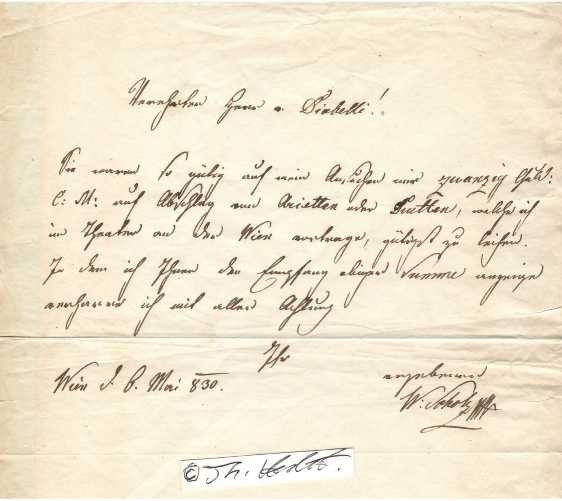 Verehrter Herr v. Diabelli!
Sie waren so gütig auf mein Ansuchen mir zwanzig Guld:
C: M: auf Abschlag von Arietten oder Duetten, welche ich
im Theater an der Wien vortrage, gütigst zu leihen.
In dem ich Ihnen den Empfang obiger Summe anzeige
verharre ich mit aller Achtung
Ihr
Wien d. 6. Mai 830.
ergebenster
W. Scholz
©